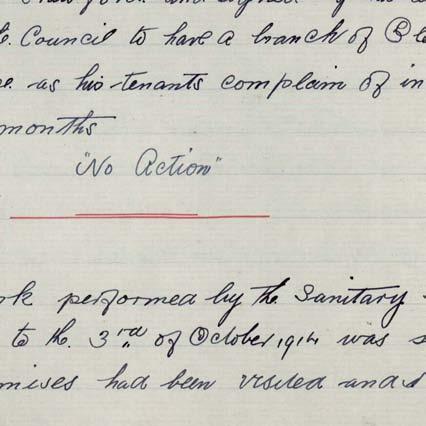 Council to have a branch of
as his tenants complain of in
months
"No Action"
performed by the Sanitary
to the 3rd of October 1914 was
had been visited and